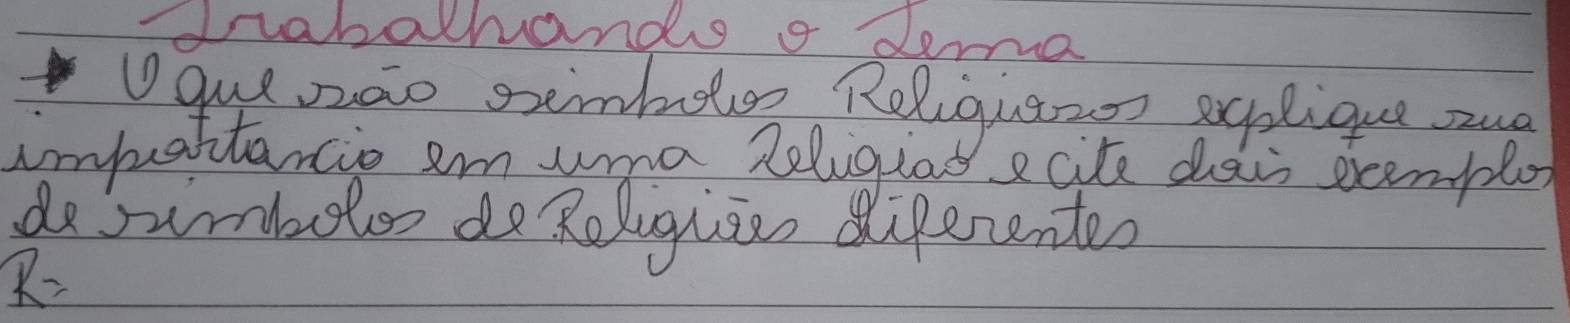 Trabalhando o Tema
→ O que são simbolos Religiosos explique sua
importancia em uma Religião e cite dois exemplos
de simbolos de Religiões diferentes
R=